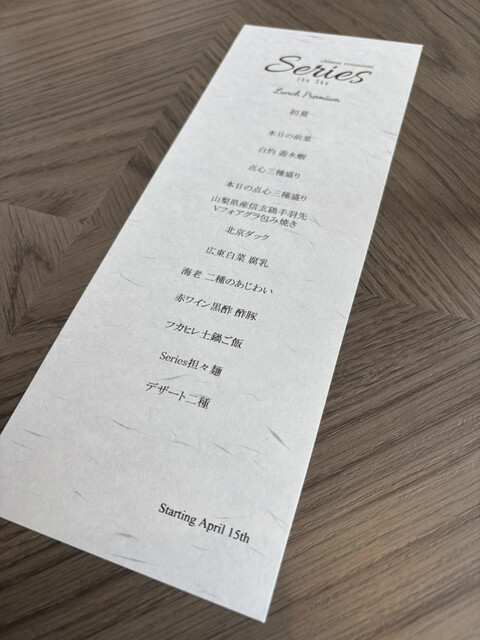 chinese restaurant
Series
the Sky
Lunch Premium
初夏
本日の前菜
白灼 巌水蝦
点心三種盛り
本日の点心三種盛り
山梨県産信玄鶏手羽先
Vフォアグラ包み焼き
北京ダック
広東白菜 腐乳
海老 二種のあじわい
赤ワイン黒酢 酢豚
フカヒレ土鍋ご飯
Series担々麺
デザート二種
Starting April 15th